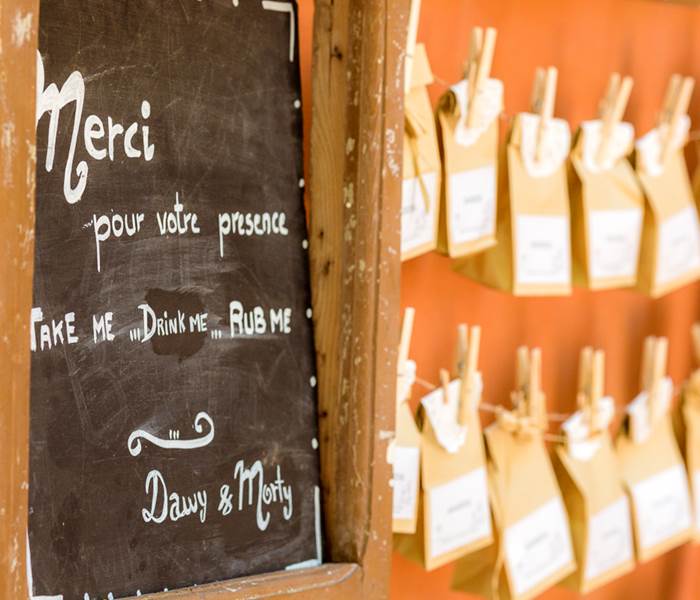 Merci
pour votre presence
TAKE ME ...DRINK ME... RUB ME
...
Dawy & Morty